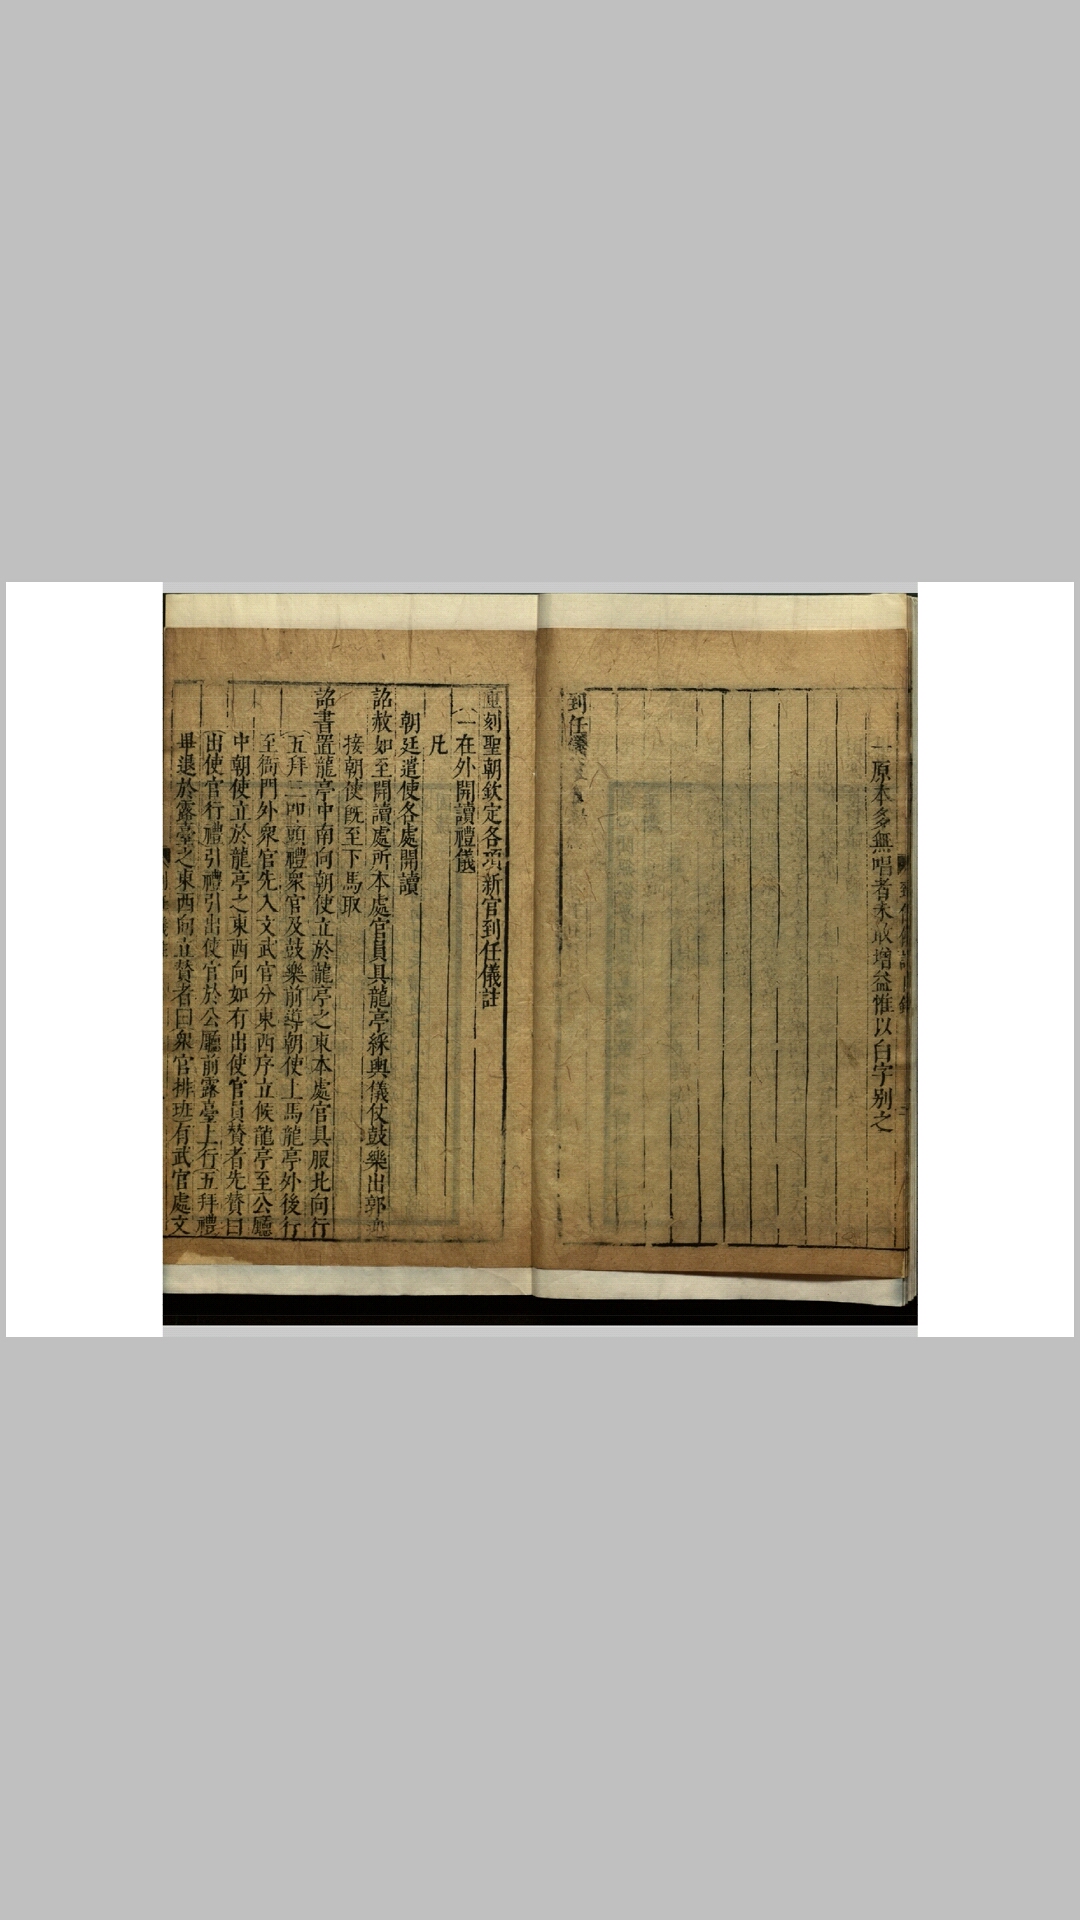 一原本多無唱者未敢增益惟以白字別之
到任儀
重刻聖朝欽定各項新官到任儀註
一在外開讀禮儀
凡
朝廷遣使各處開讀
詔赦如至開讀處所本處官員具龍亭綵輿儀仗鼓樂出郭迎
接朝使既至下馬取
詔書置龍亭中南向朝使立於龍亭之東本處官具服北向行
五拜三叩頭禮衆官及鼓樂前導朝使上馬龍亭外後行
至衙門外衆官先入文武官分東西序立候龍亭至公廳
中朝使立於龍亭之東西向如有出使官員贊者先贊曰
出使官行禮引禮引出使官於公廳前露臺上行五拜禮
畢退於露臺之東西向立贊者曰衆官排班有武官處文